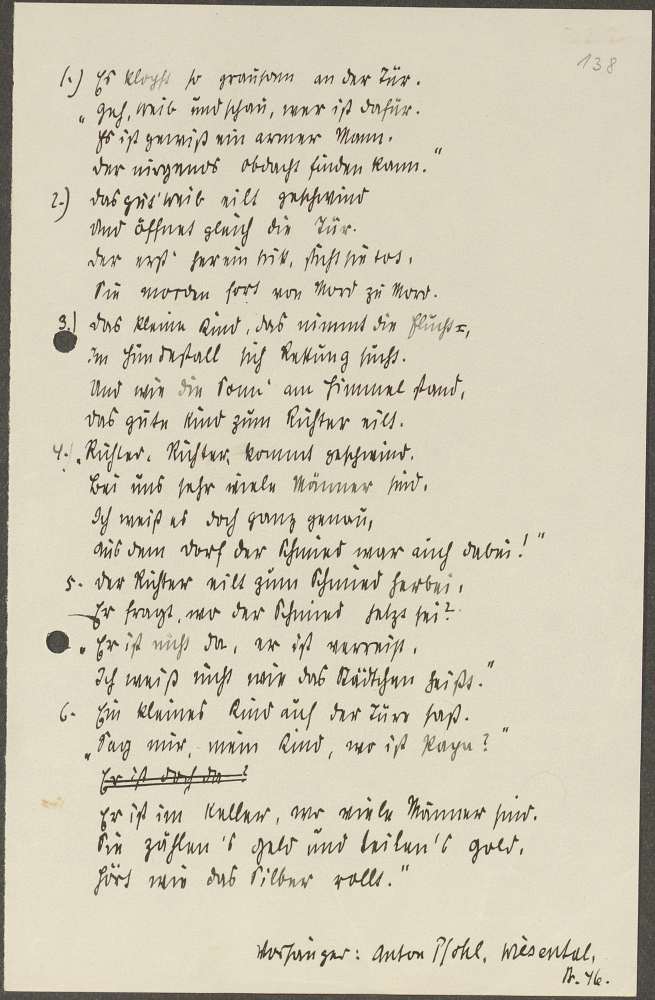 138
1.) Es klopft so grausam an der Tür.
„Geh, Weib und schau, wer ist dafür.
Es ist gewiß ein armer Mann.
Der nirgends Obdacht finden kann."
2.) Das gut' Weib eilt geschwind
Und öffnet gleich die Tür.
Der erst' hereintritt, sticht sie tot,
Sie morden fort von Mord zu Mord.
3.) Das kleine Kind, das nimmt die Flucht,
Im Hundestall sich Rettung sucht.
Und wie die Sonn' am Himmel stand,
Das gute Kind zum Richter eilt.
4.) „Richter, Richter, kommt geschwind.
Bei uns sehr viele Männer sind.
Ich weiß es doch ganz genau,
Aus dem Dorf der Schmied war auch dabei!"
5. Der Richter eilt zum Schmied herbei,
Er fragt, wo der Schmied jetzt sei?
„Er ist nicht da, er ist verreist,
Ich weiß nicht wie das Städtchen heißt."
6. Ein kleines Kind auf der Türe saß.
„Sag mir, mein Kind, wo ist Papa?"
Er ist doch da?
Er ist im Keller, wo viele Männer sind.
Sie zählen's Geld und teilen's Gold,
Hört wie das Silber rollt."
Vorsänger: Anton Pfohl, Wiesental,
Nr. 46.